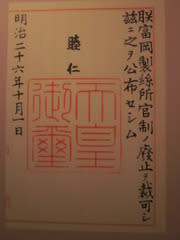 朕富岡製絲所官制ノ廃止ヲ裁可シ
玆ニ之ヲ公布セシム
睦仁
天皇
御璽
明治二十六年十月一日